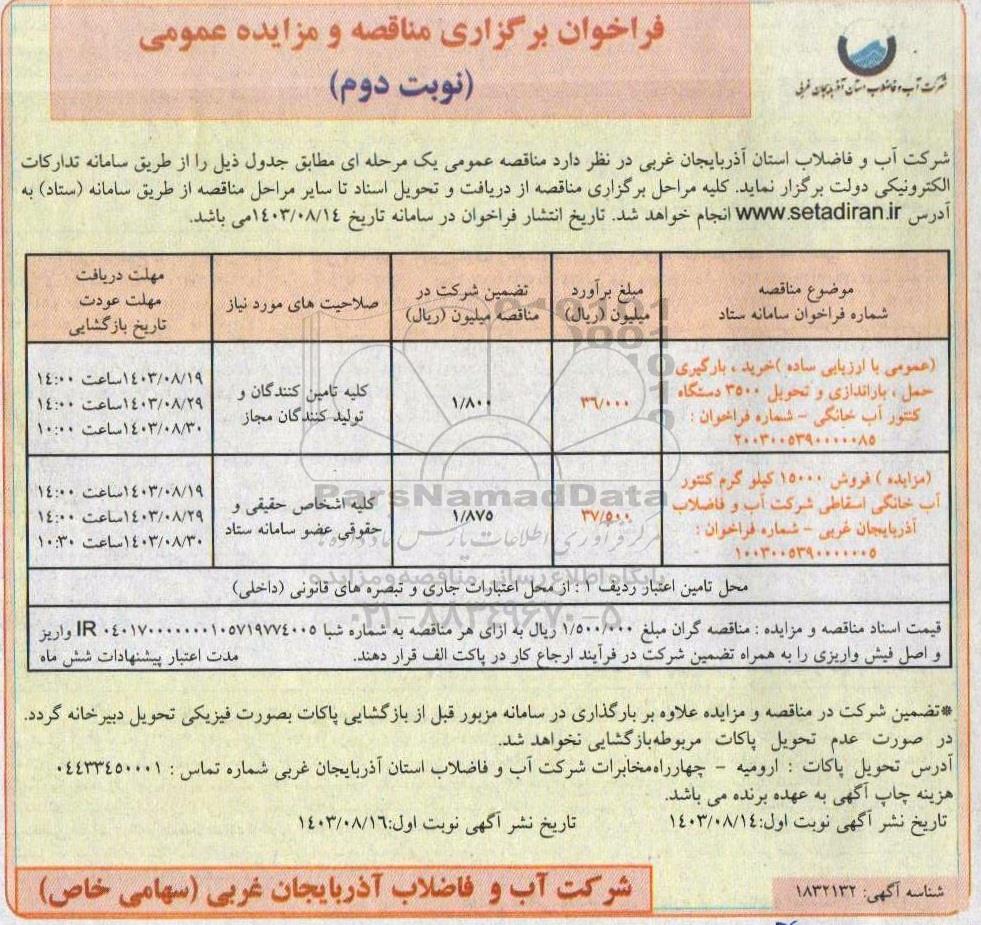 فراخوان برگزاری مناقصه و مزایده عمومی
(نوبت دوم)
شرکت آب و فاضلاب استان آذربایجان غربی
شرکت آب و فاضلاب استان آذربایجان غربی در نظر دارد مناقصه عمومی یک مرحله ای مطابق جدول ذیل را از طریق سامانه تدارکات
الکترونیکی دولت برگزار نماید. کلیه مراحل برگزاری مناقصه از دریافت و تحویل اسناد تا سایر مراحل مناقصه از طریق سامانه (ستاد) به
آدرس www.setadiran.ir انجام خواهد شد. تاریخ انتشار فراخوان در سامانه تاریخ ۱۴۰۳/۰۸/۱۴می باشد.
موضوع مناقصه
شماره فراخوان سامانه ستاد
مبلغ برآورد
میلیون (ریال)
تضمین شرکت در
مناقصه میلیون (ریال)
صلاحیت های مورد نیاز
مهلت دریافت
مهلت عودت
تاریخ بازگشایی
(عمومی با ارزیابی ساده )خرید ، بارگیری
حمل ، باراندازی و تحویل ۳۵۰۰ دستگاه
کنتور آب خانگی - شماره فراخوان :
۲۰۰۳۰۰۵۳۹۰۰۰۰۰۸۵
۳۶/۰۰۰
۱/۸۰۰
کلیه تامین کنندگان و
تولید کنندگان مجاز
۱۴۰۳/۰۸/۱۹ساعت ۱۴:۰۰
۱۴۰۳/۰۸/۲۹ساعت ۱۴:۰۰
۱۴۰۳/۰۸/۳۰ساعت ۱۰:۰۰
(مزایده ) فروش ۱۵۰۰۰ کیلو گرم کنتور
آب خانگی اسقاطی شرکت آب و فاضلاب
آذربایجان غربی - شماره فراخوان :
۱۰۰۳۰۰۵۳۹۰۰۰۰۰۰۵
۳۷/۵۰۰
۱/۸۷۵
کلیه اشخاص حقیقی و
حقوقی عضو سامانه ستاد
۱۴۰۳/۰۸/۱۹ساعت ۱۴:۰۰
۱۴۰۳/۰۸/۲۹ساعت ۱۴:۰۰
۱۴۰۳/۰۸/۳۰ساعت ۱۰:۳۰
ParsNamadData
مرکز فرآوری اطلاعات پارس نماد داده ها
پایگاه اطلاع رسانی مناقصه و مزایده
۰۲۱-۸۸۳۴۹۶۷۰-۵
محل تامین اعتبار ردیف ۱ : از محل اعتبارات جاری و تبصره های قانونی (داخلی)
قیمت اسناد مناقصه و مزایده : مناقصه گران مبلغ ۱/۵۰۰/۰۰۰ ریال به ازای هر مناقصه به شماره شبا IR ۰۴۰۱۷۰۰۰۰۰۰۰۱۰۵۷۱۹۷۷۴۰۰۵ واریز
و اصل فیش واریزی را به همراه تضمین شرکت در فرآیند ارجاع کار در پاکت الف قرار دهند. مدت اعتبار پیشنهادات شش ماه
*تضمین شرکت در مناقصه و مزایده علاوه بر بارگذاری در سامانه مزبور قبل از بازگشایی پاکات بصورت فیزیکی تحویل دبیرخانه گردد.
در صورت عدم تحویل پاکات مربوطه‌بازگشایی نخواهد شد.
آدرس تحویل پاکات : ارومیه - چهارراه‌مخابرات شرکت آب و فاضلاب استان آذربایجان غربی شماره تماس : ۰۴۴۳۳۴۵۰۰۰۱
هزینه چاپ آگهی به عهده برنده می باشد.
تاریخ نشر آگهی نوبت اول:۱۴۰۳/۰۸/۱۴ تاریخ نشر آگهی نوبت اول:۱۴۰۳/۰۸/۱۶
شناسه آگهی: ۱۸۳۲۱۳۲
شرکت آب و فاضلاب آذربایجان غربی (سهامی خاص)